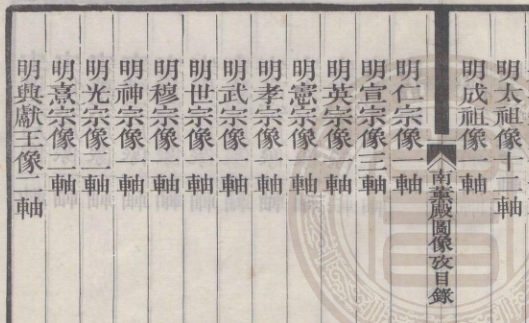 明太祖像十二軸
明成祖像一軸
南薰殿圖像攷目錄
明仁宗像一軸
明宣宗像三軸
明英宗像一軸
明憲宗像一軸
明孝宗像一軸
明武宗像一軸
明世宗像一軸
明穆宗像一軸
明神宗像一軸
明光宗像一軸
明熹宗像二軸
明興獻王像二軸